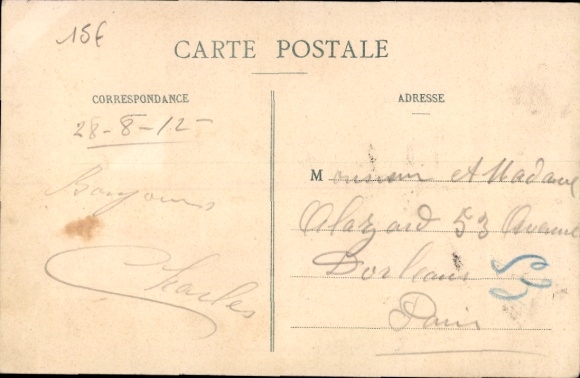 15€
CARTE POSTALE
CORRESPONDANCE
28-8-12-
Bonjours
Charles
ADRESSE
Monsieur et Madame
Alazard 53 Avenue
Dorleans
Paris